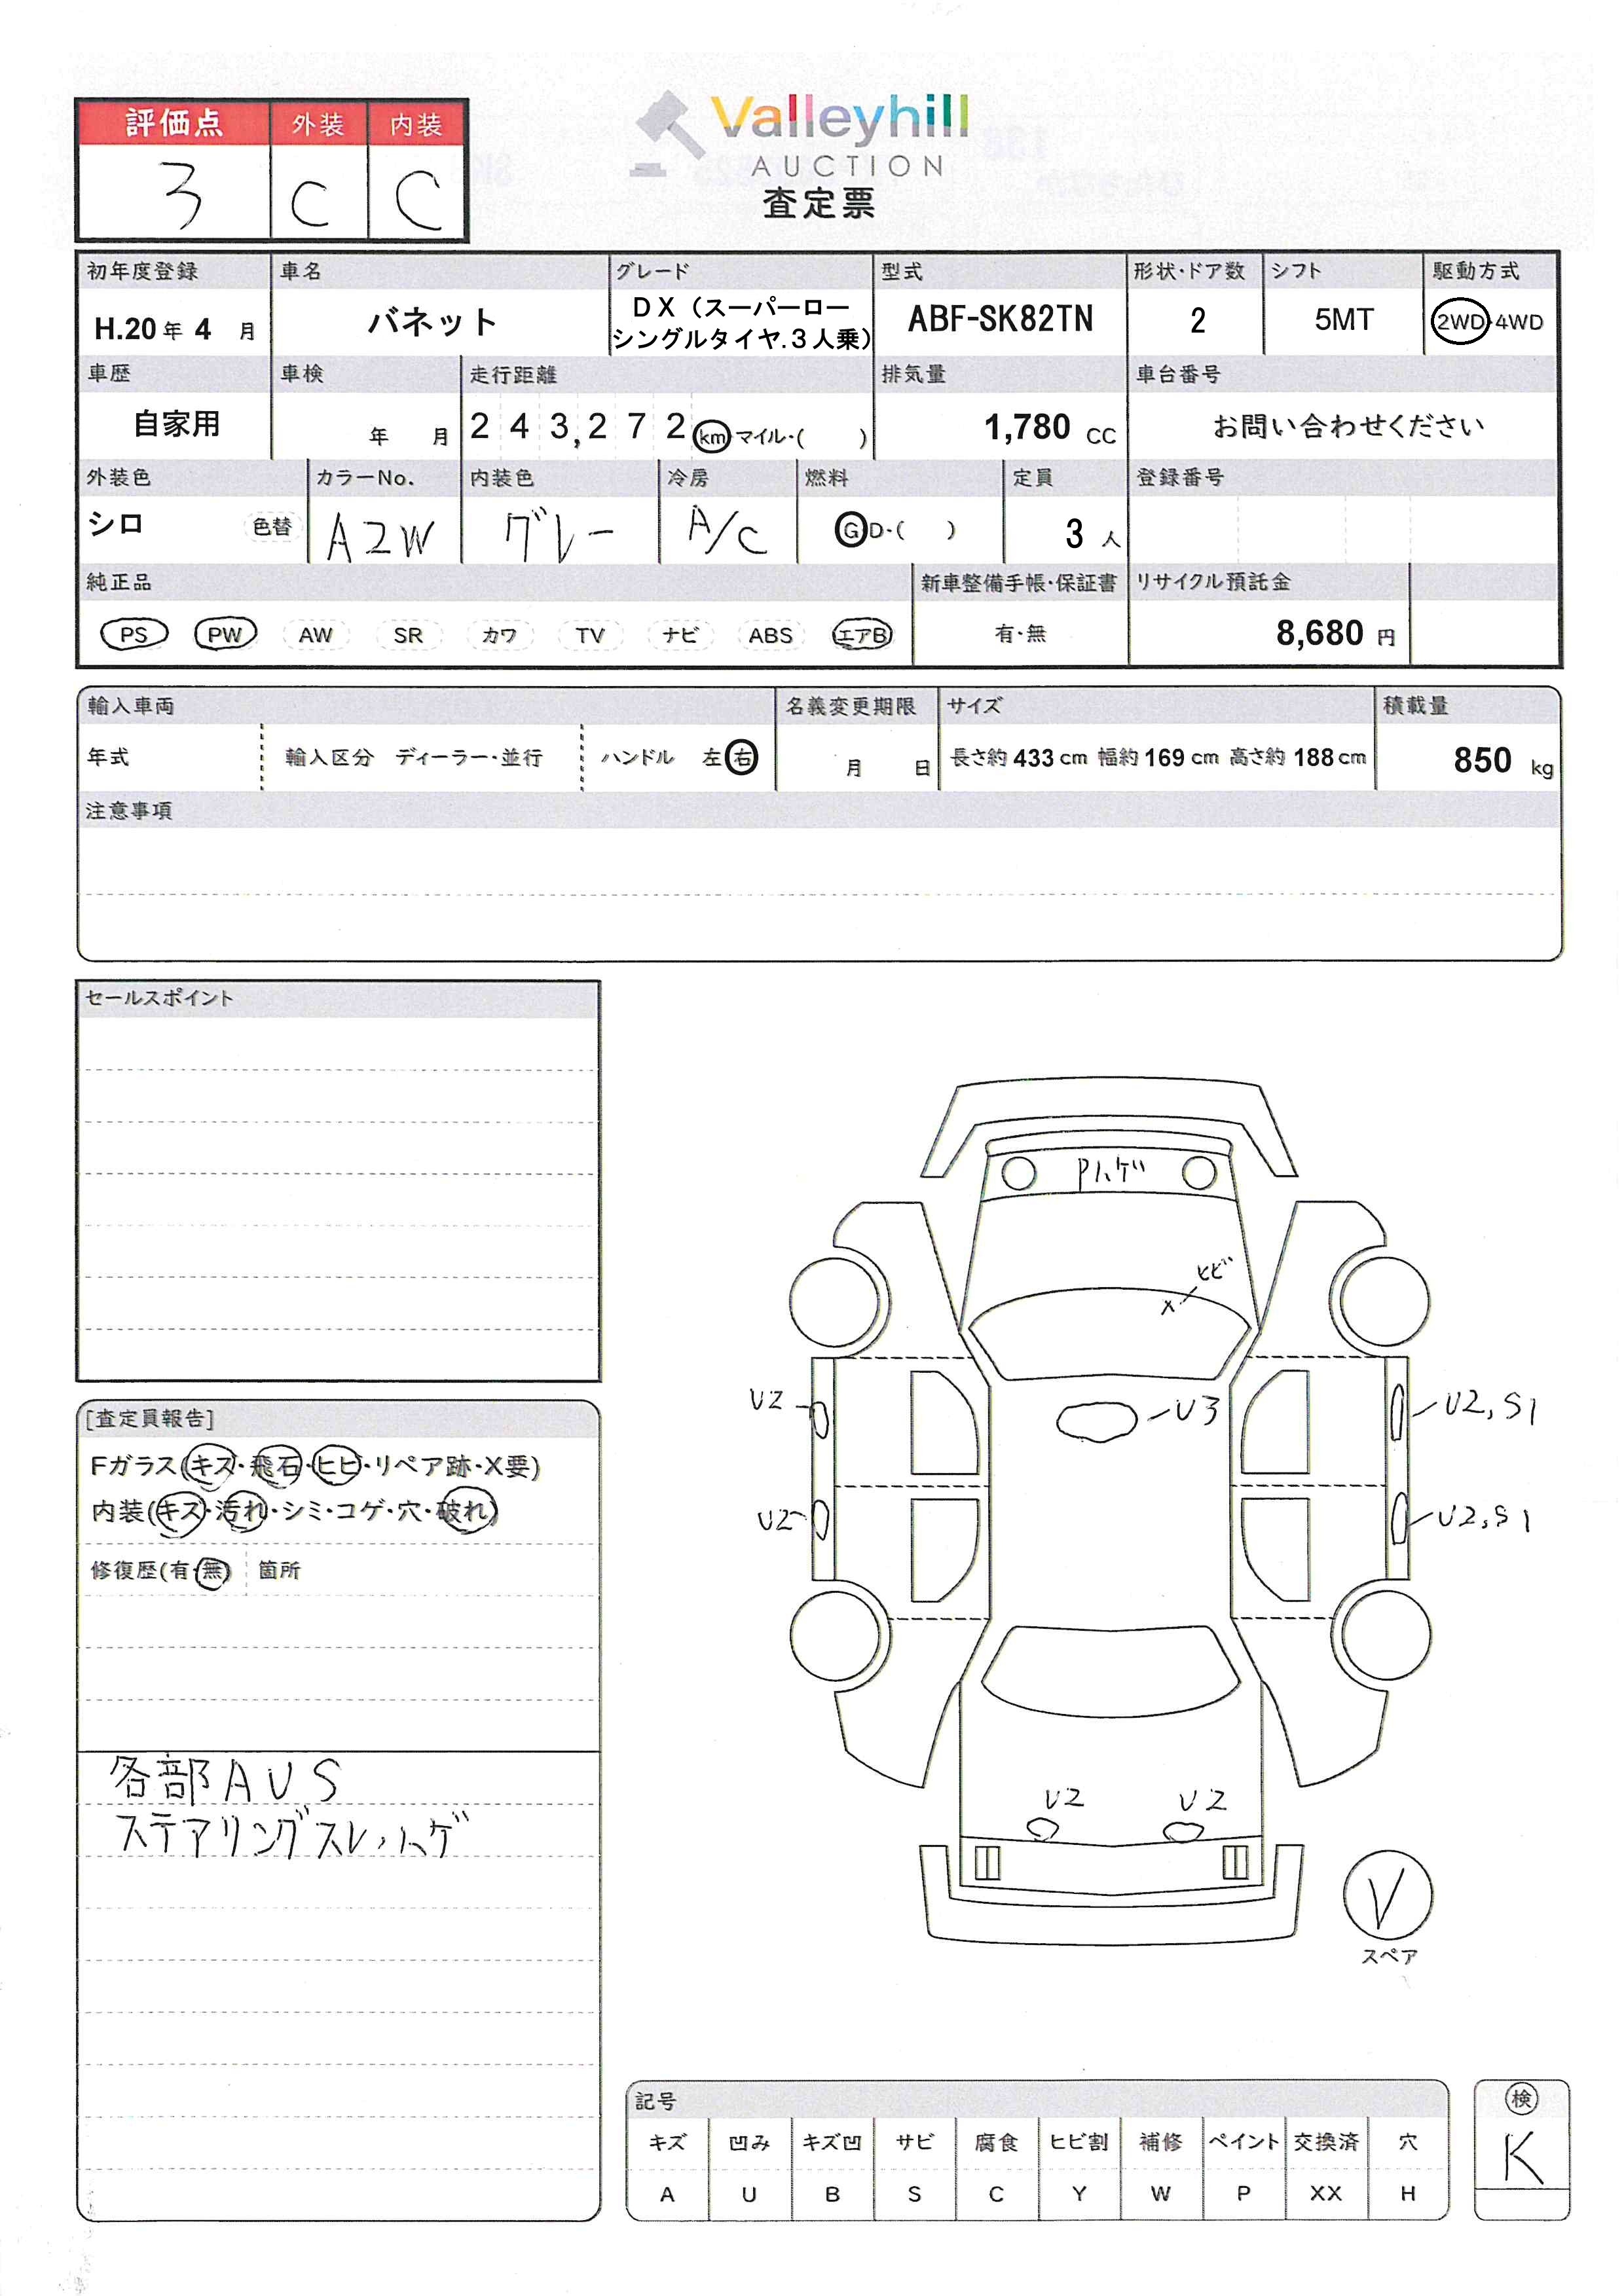 評価点 外装 内装
3 C C
Valleyhill
AUCTION
査定票
初年度登録 車名 グレード 型式 形状・ドア数 シフト 駆動方式
H.20年 4 月 バネット DX（スーパーローシングルタイヤ.3人乗） ABF-SK82TN 2 5MT 2WD・4WD
車歴 車検 走行距離 排気量 車台番号
自家用 年 月 243,272 km マイル・( ) 1,780 CC お問い合わせください
外装色 カラーNo. 内装色 冷房 燃料 定員 登録番号
シロ 色替 A2W グレー A/C G・D・( ) 3 人
純正品 新車整備手帳・保証書 リサイクル預託金
PS PW AW SR カワ TV ナビ ABS エアB 有・無 8,680 円
輸入車両 名義変更期限 サイズ 積載量
年式 輸入区分 ディーラー・並行 ハンドル 左右 月 日 長さ約 433 cm 幅約 169 cm 高さ約 188 cm 850 kg
注意事項
セールスポイント
[査定員報告]
Fガラス(キズ・飛石・ヒビ・リペア跡・X要)
内装(キズ・汚れ・シミ・コゲ・穴・破れ)
修復歴(有・無) 箇所
各部AUS
ステアリングスレ、ハゲ
Pハゲ
ヒビ
X
U2
U3
U2,S1
U2
U2,S1
U2
U2
V
スペア
記号
キズ 凹み キズ凹 サビ 腐食 ヒビ割 補修 ペイント 交換済 穴
A U B S C Y W P XX H
検
K